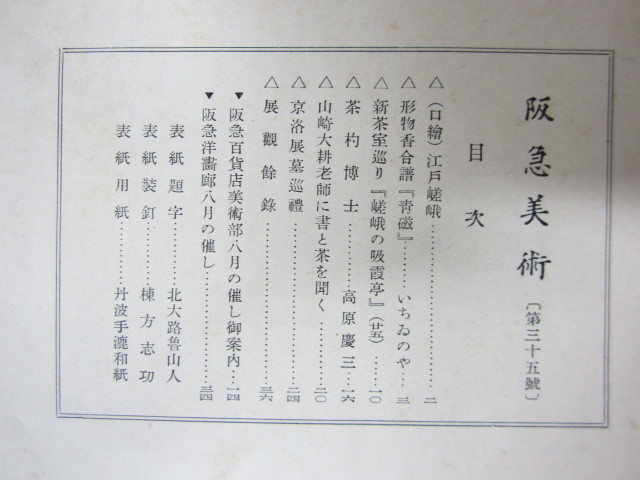 阪急美術〔第三十五號〕
目次
△（口繪）江戸嵯峨…………二
△形物香合譜『青磁』……いちゐのや…三
△新茶室巡り『嵯峨の吸霞亭』（廿五）……一〇
△茶杓博士…………高原慶三…一六
△山崎大耕老師に書と茶を聞く…………二〇
△京洛展墓巡禮…………二四
△展觀餘錄…………三六
▼阪急百貨店美術部八月の催し御案内…一四
▼阪急洋畫廊八月の催し…………三四
表紙題字…………北大路魯山人
表紙裝釘…………棟方志功
表紙用紙…………丹波手漉和紙